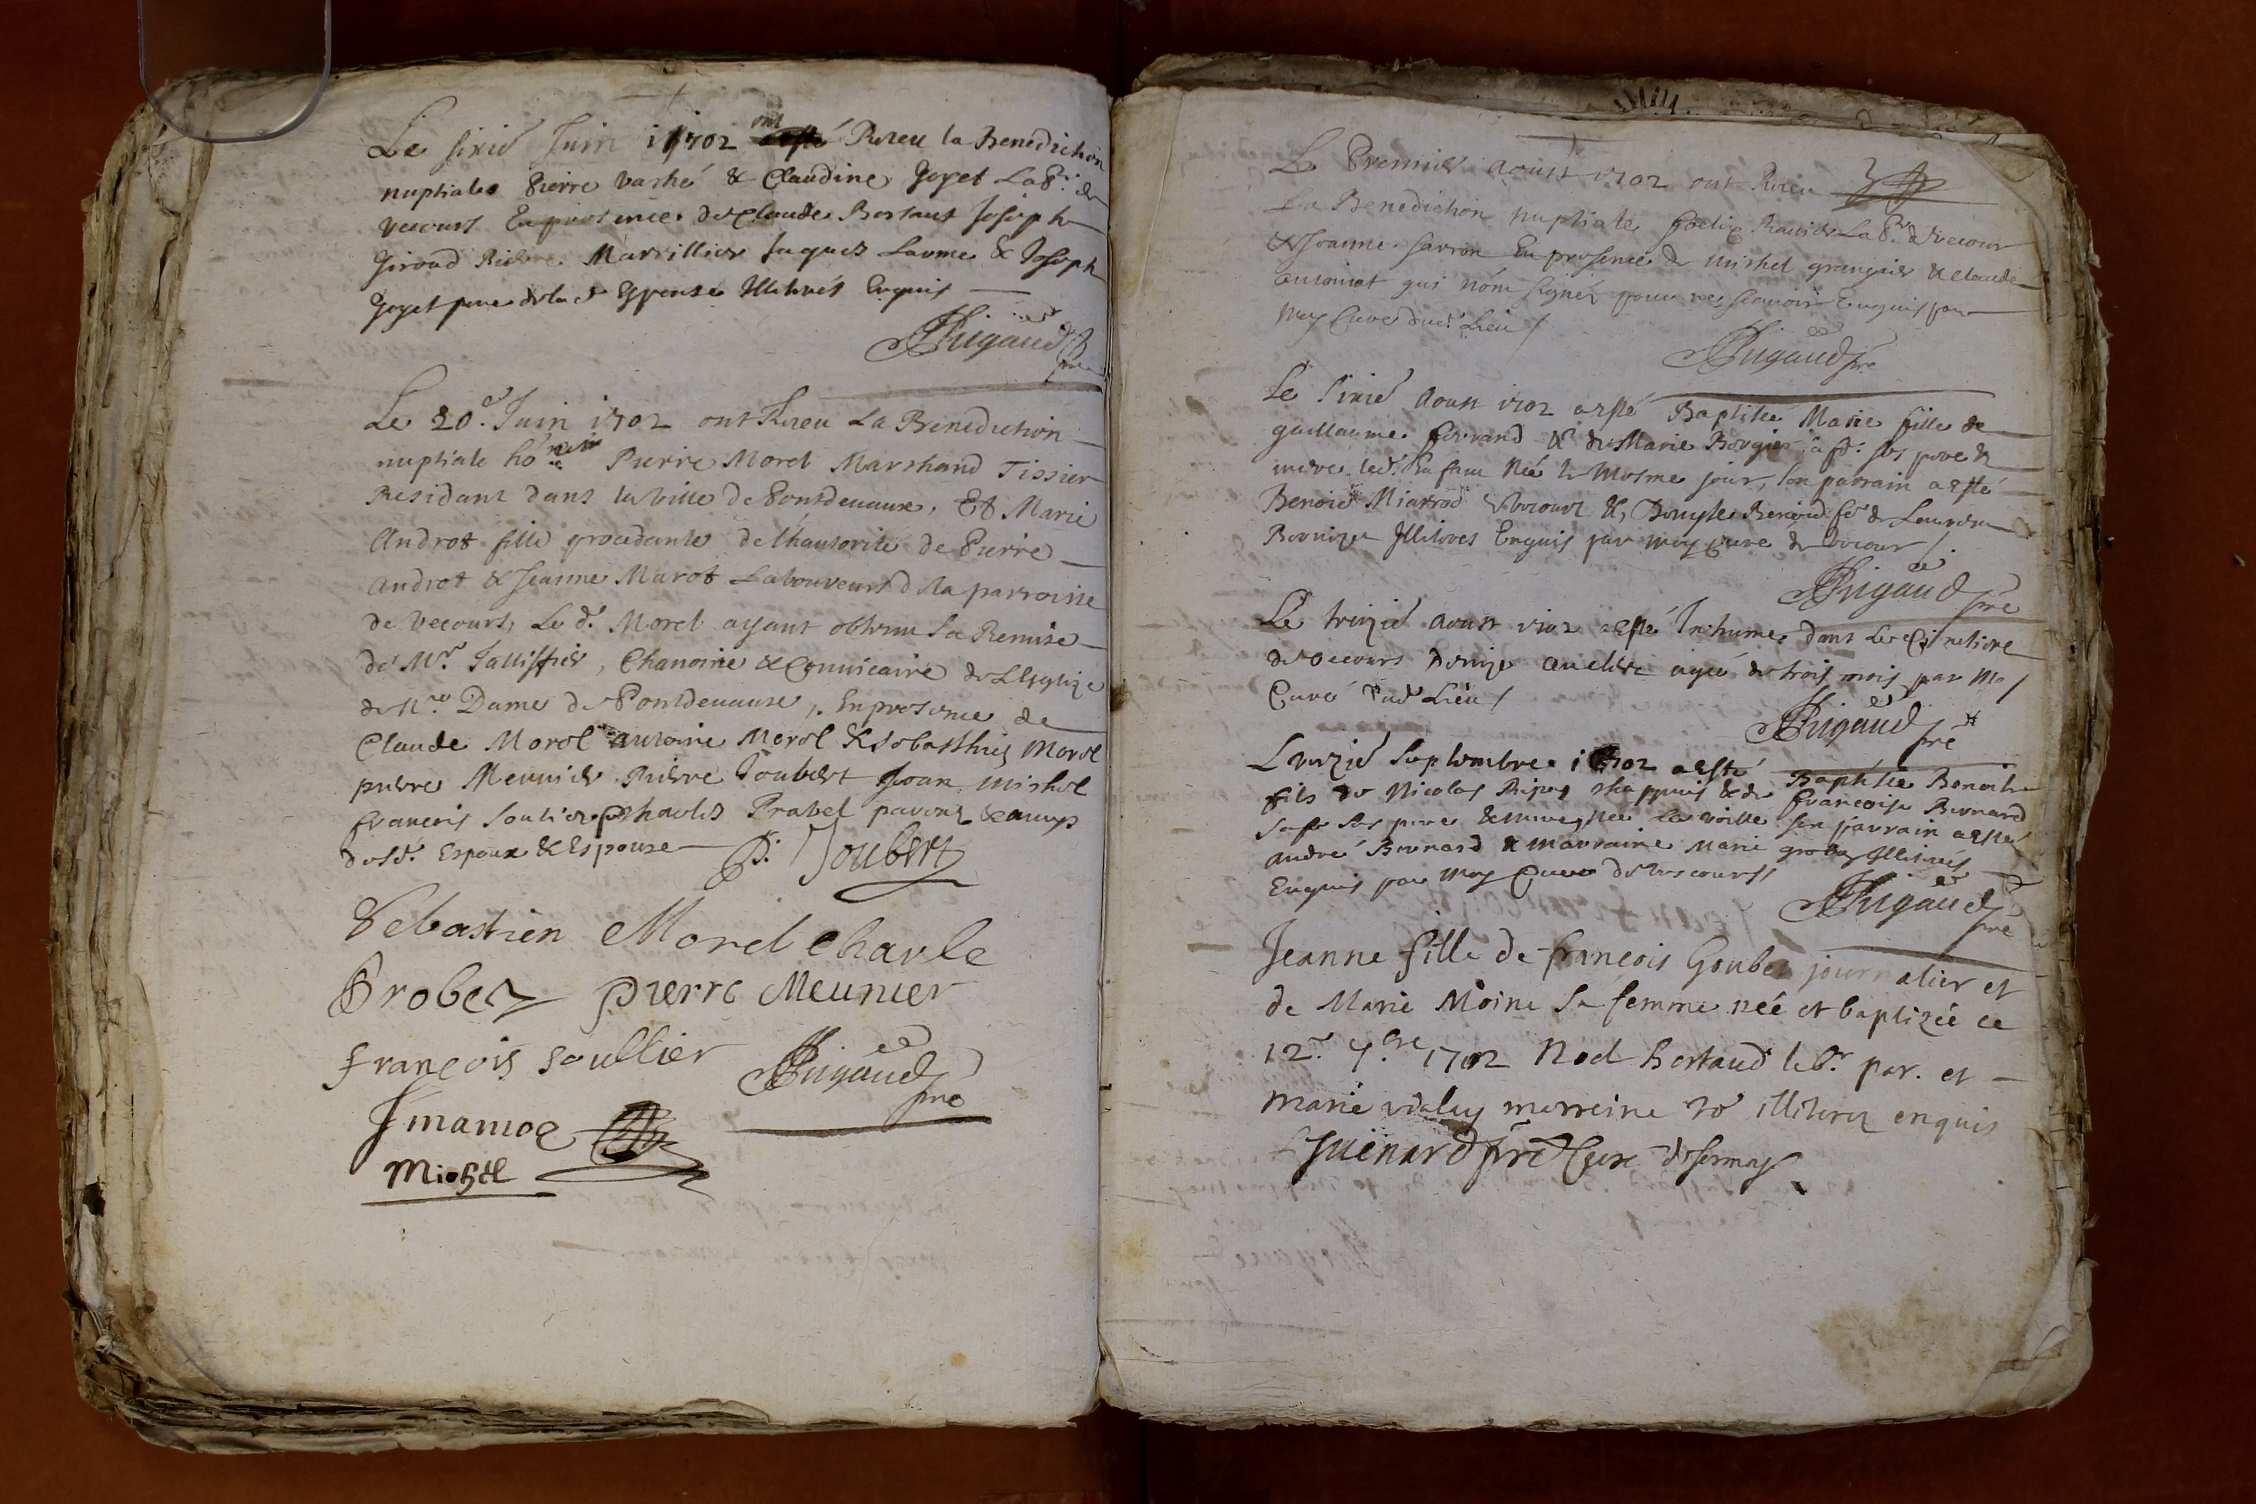 Le sixie Juin 1702 ont Receu la Benediction
nuptiale Pierre vaché & Claudine Goyet Lab.r de
Vecours En presence de Claude Bertaut Joseph
Giroud Pierre Marillier Jaques Laome & Joseph
Goyet pere de la d Espouse Illiterés Enquis
JRigaud
pre
Le 20.e Juin 1702 ont Receu La Benediction
nuptiale ho.neste Pierre Morel Marchand Tissier
Residant dans la ville de Pontdevaux, Et Marie
Androt fille procedante de l'hautorité de Pierre
Androt & Jeanne Marot Laboureurs d la parroisse
de Vecours, Le d. Morel ayant obtenu sa Remise
de M.r Tallissier, Chanoine & Convicaire de L'Eglize
de N.e Dame de Pontdevaux, En presence de
Claude Morel antoine Morel & sebasthien Morel
pierre Meunier Pierre Joubert Jean Michel
francois Soulier Charles Prabel parens & amys
des d. Espoux & Espouse P. Joubert
Sebastien Morel charle
Probez pierre Meunier
françois soullier JRigaud
pre
Michel
Le Premier aoust 1702 ont Receu
La Benediction nuptiale Lab.r de Vecour
& Jeanne Parron En presence de Michel grangier & claude
antoinat qui n'ont signéz pour ne scavoir Enquis par
moy Curé dud. Lieu /
JRigaud pre
Le Sixie Aoust 1702 a esté Baptisée Marie fille de
guillaume ferrand & de Marie Borgier sa fe. ses pere &
mere led. Enfant Née le mesme jour, son parrain a esté
Benoid de Vecours & Benoid fe de
Illiteres Enquis par moy curé de Vecour /.
JRigaud pre
Le treizie aoust 1702 a esté Inhumé dans Le Cimetiere
de Vecours ageé de trois mois par Moy
Curé dud. Lieu /
JRigaud pre
L'onzie Septembre 1702 a esté Baptisée Benoite
fils de Nicolas & de francoise Bernard
sa fe ses pere & mere Née la veille son parrain a esté
André Bernard & marraine Marie Illiterés
Enquis par Moy Curé de Vescours
JRigaud pre
Jeanne fille de francois Goubet journalier et
de Marie Moine sa femme née et baptizée ce
12.e 7.bre 1702 Noel Bertaud lab.r par. et
Marie vialay marreine illiterez enquis
Guenard pre Curé de sermoy